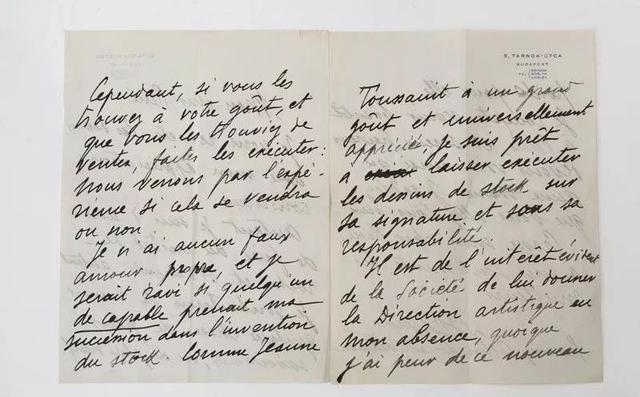 Cependant, si vous les
trouvez à votre goût, et
que vous les trouviez de
ventes, faites les exécuter:
nous venons par l'expé-
rience si cela se vendra
ou non.
Je n'ai aucun faux
amour propre, et je
serait ravi si quelqu'un
de capable prenait ma
succession dans l'invention
du stock. Comme Jeanne
5, TARNOK-UTCA
BUDAPEST
Toussaint à un grand
goût et universellement
appréciés, je suis prêt
a laisser exécuter
les dessins de stock sur
sa signature et sous sa
responsabilité.
Il est de l'intérêt évident
de la Société de lui donner
la Direction artistique en
mon absence, quoique
j'ai peur de ce nouveau